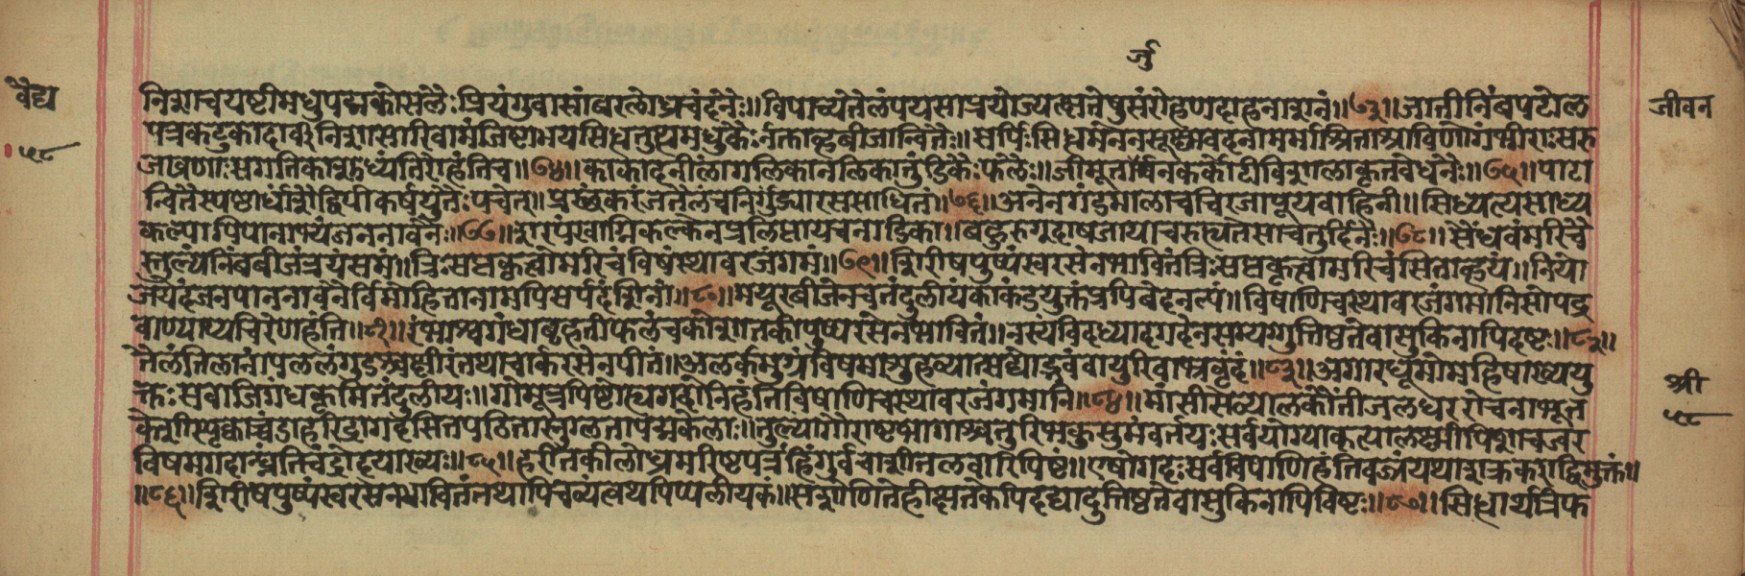 र्जु
वैद्य
५८
जीवन
श्री
५८
निशाचयष्टीमधुपद्मकोत्पलैः प्रियंगुवासांबरलोध्रचंदनैः॥ विपाच्यतैलंपयसाप्रयोज्य त्क्षतेषुसंरोहणदाहनाशनं॥७३॥ जातीनिंबपटोल
पत्रकटुकादार्वीनिशासारिवामंजिष्टाभयसिद्धतुत्थमधुकैःनक्ताह्वबीजान्वितैः॥ सर्पिःसिद्धमनेनसूक्ष्मवदनामर्माश्रिताश्राविणोगंभीराःसरु
जोव्रणाः सगतिकाशुध्यंतिरोहंतिच॥७४॥ काकादनीलांगलिकानलिकातुंडिकैःफलैः॥ जीमूतबीजकर्कोटीविशालाकृतवेधनैः॥७५॥ पाठा
न्वितैस्पष्टार्धांशैर्द्विपीकर्षयुतैःपचेत्॥ प्रस्थंकरंजतैलंचनिर्गुंड्यारससाधितं॥७६॥ अनेनगंडमालाचचिरजापूयवाहिनी॥ सिध्यत्यसाध्य
कल्पापिपानाभ्यंजननावनैः॥७७॥ शरपुंखाग्निकल्केनप्रलिप्तायचनाडिका॥ बहुरुगुदाषजायाचरुह्यतेसाचतुर्दिनैः॥७८॥ सैंधवंमरिचै
स्तुल्यंनिंबबीजंत्रयंसमं॥ त्रिःसप्तकृत्वोमरिचंविषंस्थावरजंगमं॥७९॥ शिरीषपुष्पस्वरसेनभावितंत्रिःसप्तकृत्वोमरिचंसिताह्वयं॥ नियो
जयेदंजनपाननावनैर्विमोहितानामपिसर्पदंशिनां॥८०॥ मयूरबीजेनचतंदुलीयंकाकंडयुक्तंप्रपिबेदनल्पं॥ विषाणिचस्थावरजंगमानिसोपद्र
वाण्याप्यचिरेणहंति॥८१॥ रंभाश्वगंधाबृहतीफलंचकोशातकीपुष्परसेनभावितं॥ नस्यंविदध्यादगदेनसम्यगुत्तिष्ठतेवासुकिनापिदष्टः॥८२॥
तैलंतिलानांपललंगुडश्चक्षीरंतथाचार्करसेनपीतं॥ अलर्कमुग्रंविषमाशुहन्यात्सद्योद्भवंवायुरिवाभ्रवृंदं॥८३॥ अगारधूमोमहिषाख्ययु
क्तःसवाजिगंधकृमितंदुलीयः॥ गोमूत्रपिष्टोह्यगदोनिहंतिविषाणिचस्थावरजंगमानि॥८४॥ मांसीसव्यालकौंतीजलधररोचनाभूत
केशीस्पृक्काचंडाहरिद्रागदसितपठितास्तुग्लतापद्मकेलाः॥ तुल्यागौराष्टभागाश्चतुरिभकुसुमंवर्तयःसर्वयोग्याकृत्यालक्ष्मीपिशाचज्वर
विषमगदान्घ्नंतिचंद्रोदयाख्यः॥८५॥ हरीतकीलोध्रमरिष्टपत्रंहिंगुर्वचाशीतलवारिपिष्टं॥ एषोगदःसर्वविषाणिहंतिवज्रंयथाशक्रकराद्विमुक्तं॥
॥८६॥ शिरीषपुष्पस्वरसेनभावितंतथापिचव्यंत्वथपिप्पलीयकं॥ सशोणितेहीक्षतकेपिदद्यादुत्तिष्ठतेवासुकिनापिविष्टः॥८७॥ सिद्धार्थत्रिफ